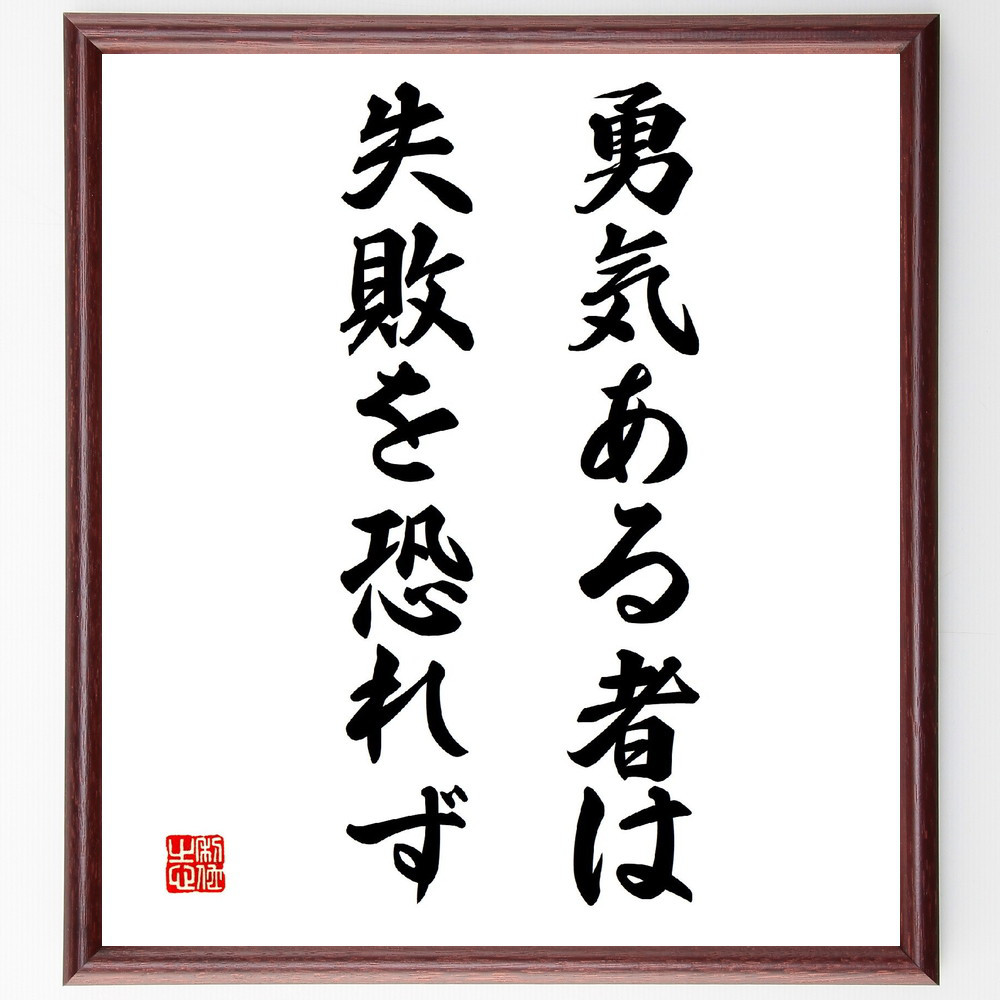 勇気ある者は
失敗を恐れず